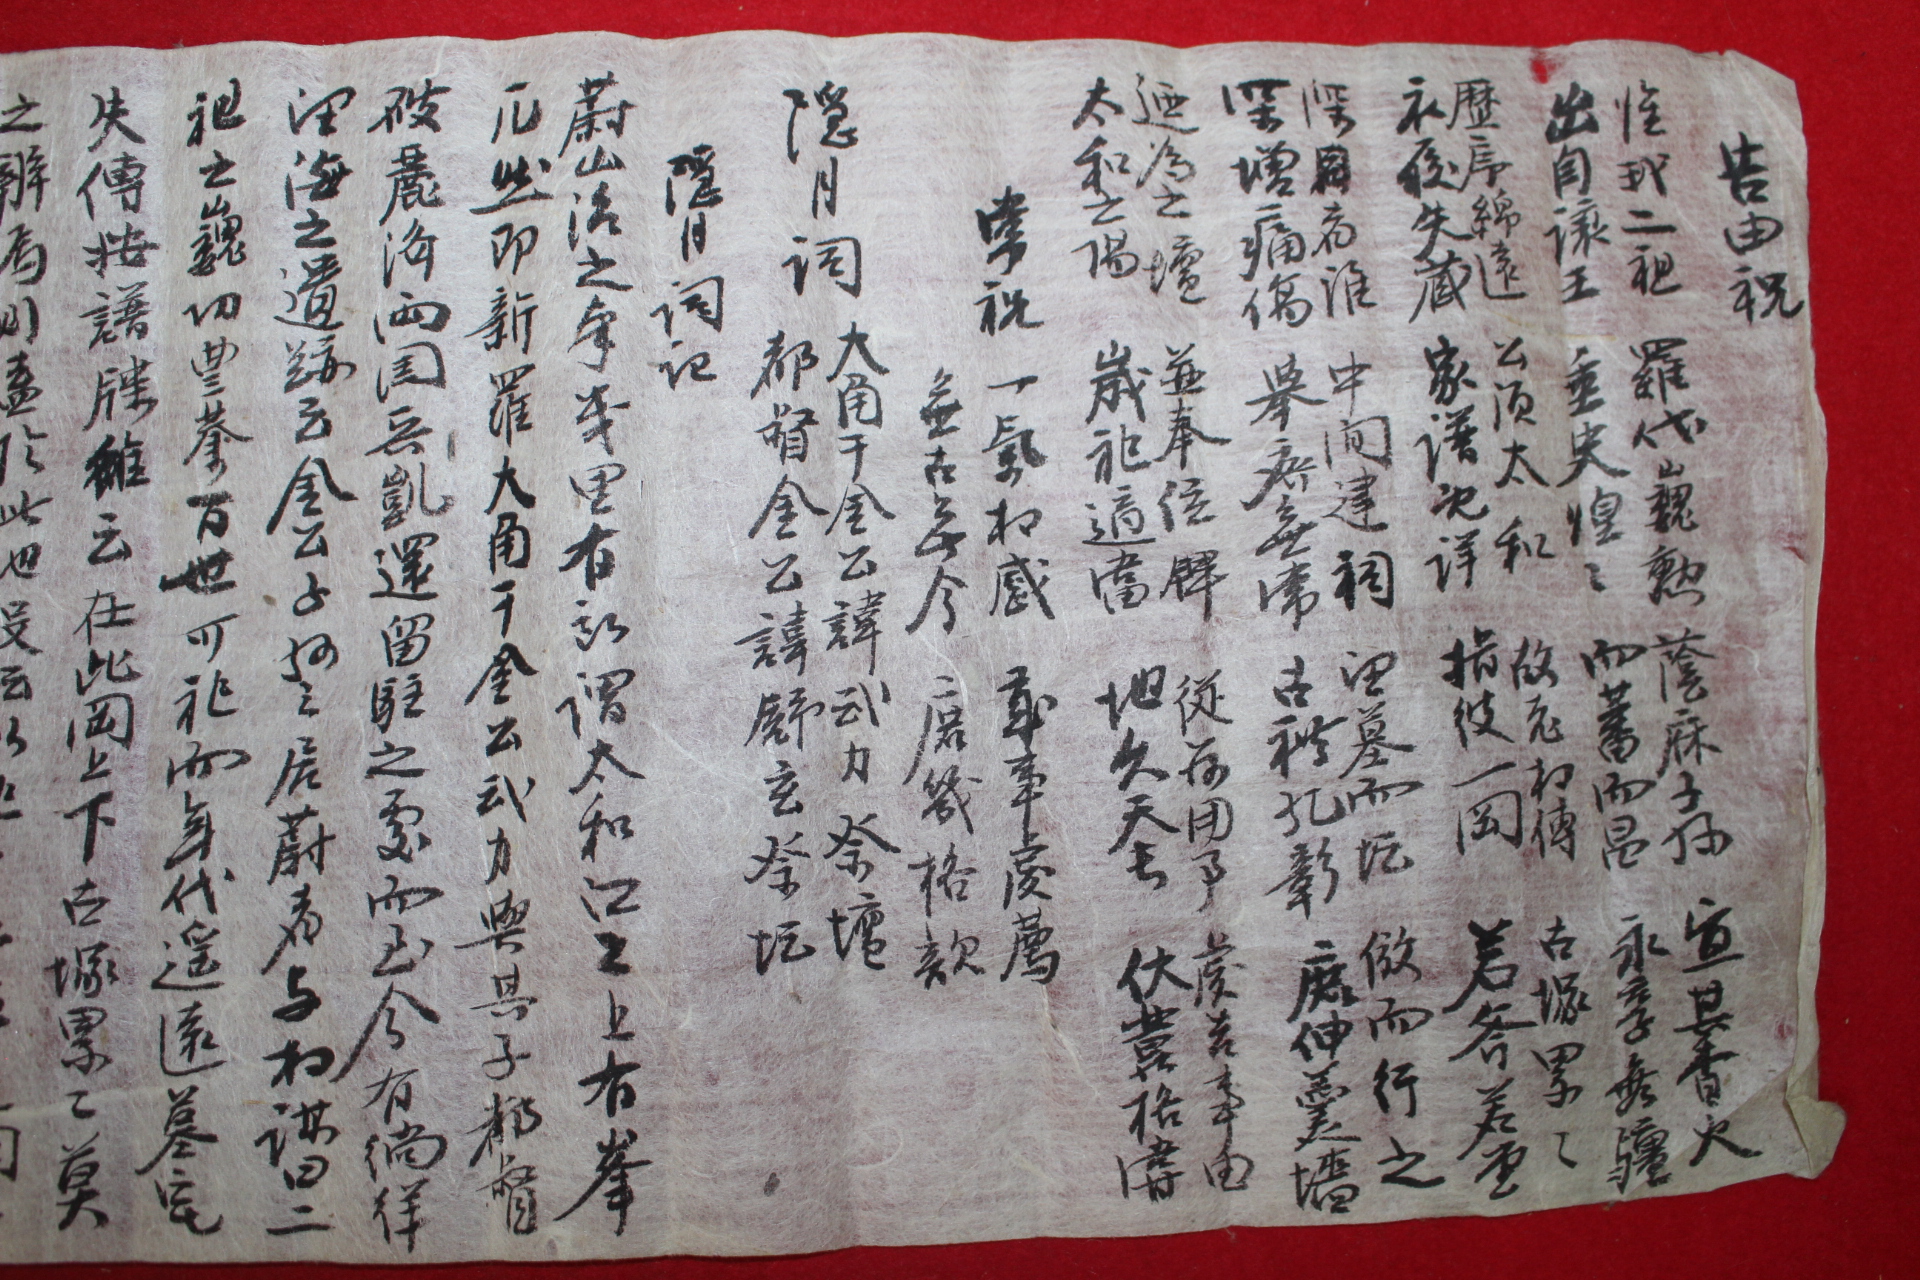 告由祝
惟我二祖 羅代巍勳 蔭庥子孫 宜其香火
出自讓王 垂史煌〻 而蕃而昌 永享無疆
歷序綿遠 公須太和 故老相傳 古塚累〻
衣履失藏 家譜記詳 指彼一岡 若斧若堂
深 爲誰 中間建祠 望墓而圮 倣而行之
深增痛傷 擧廢無常 古禮孔彰 庶伸羹墻
迺爲之壇 並奉位牌 從玆用事 虔告事由
太和之陽 歲祀適當 地久天長 伏冀格
常祝 一氣相感 載事虔薦
無古無今 二 格歆
隱月祠 大角干金公諱武力祭壇
都督金公諱舒玄祭坛
隱月祠記
蔚山治之南幾里有所謂太和江江上有峯
兀然卽新羅大角干金公武力與其子都督
破麗海西 兵凱還留駐之處而至今有徜徉
望海之遺蹟云金公子孫之居蔚者與相謀曰二
祖之巍功豊業百世可祀而年代遥遠墓宅
失傳按譜牒雖云在此岡上下古塚累〻莫
之辨焉則盖於此也